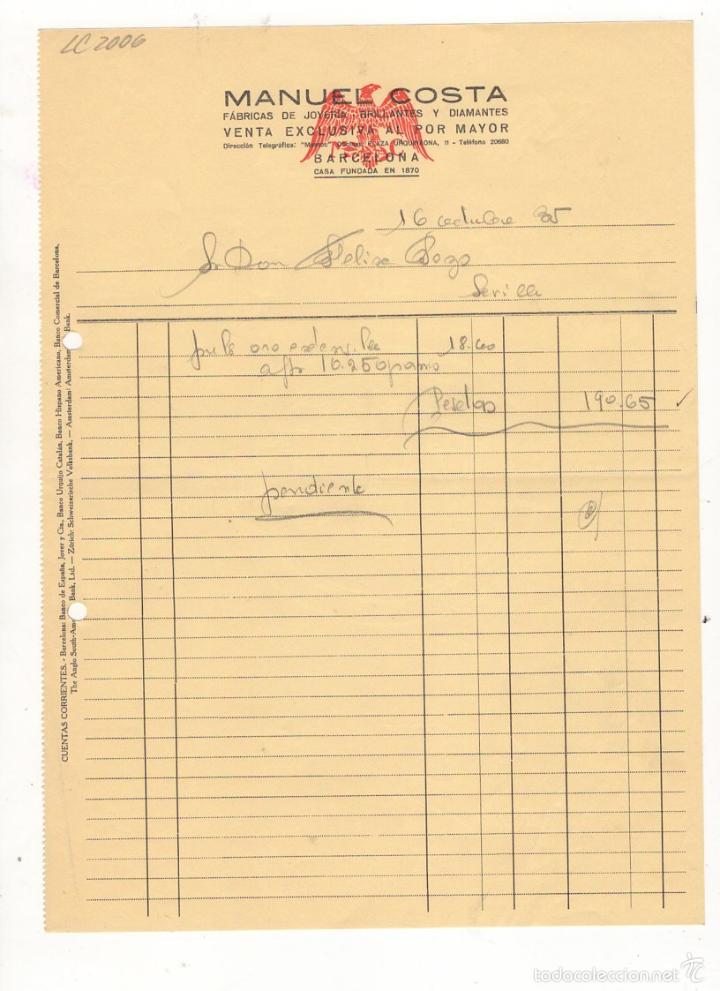 LC 2006
MANUEL COSTA
FÁBRICAS DE JOYERÍA - BRILLANTES Y DIAMANTES
VENTA EXCLUSIVA AL POR MAYOR
Dirección Telegráfica: PLAZA URQUINAONA, 11 - Teléfono 20680
BARCELONA
CASA FUNDADA EN 1870
16 octubre 35
Sr Don Felix Pozo
Sevilla
puls oro 18.60
a ptas 10.25 gramo
Pesetas 190.65
pendiente
CUENTAS CORRIENTES. - Barcelona: Banco de España, Jover y Cía., Banco Urquijo Catalán, Banco Hispano Americano, Banco Comercial de Barcelona,
The Anglo South-Ame Bank, Ltd. — Zürich: Schweizerische Volksbank. — Amsterdam: Amsterdam Bank.
todocoleccion.net